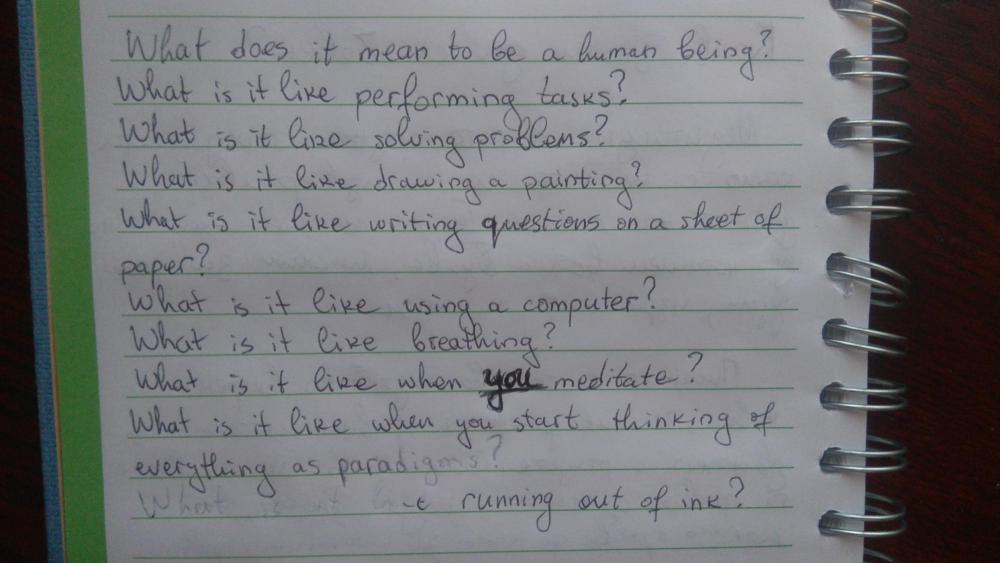 What does it mean to be a human being?
What is it like performing tasks?
What is it like solving problems?
What is it like drawing a painting?
What is it like writing questions on a sheet of
paper?
What is it like using a computer?
What is it like breathing?
What is it like when you meditate?
What is it like when you start thinking of
everything as paradigms?
What is it running out of ink?